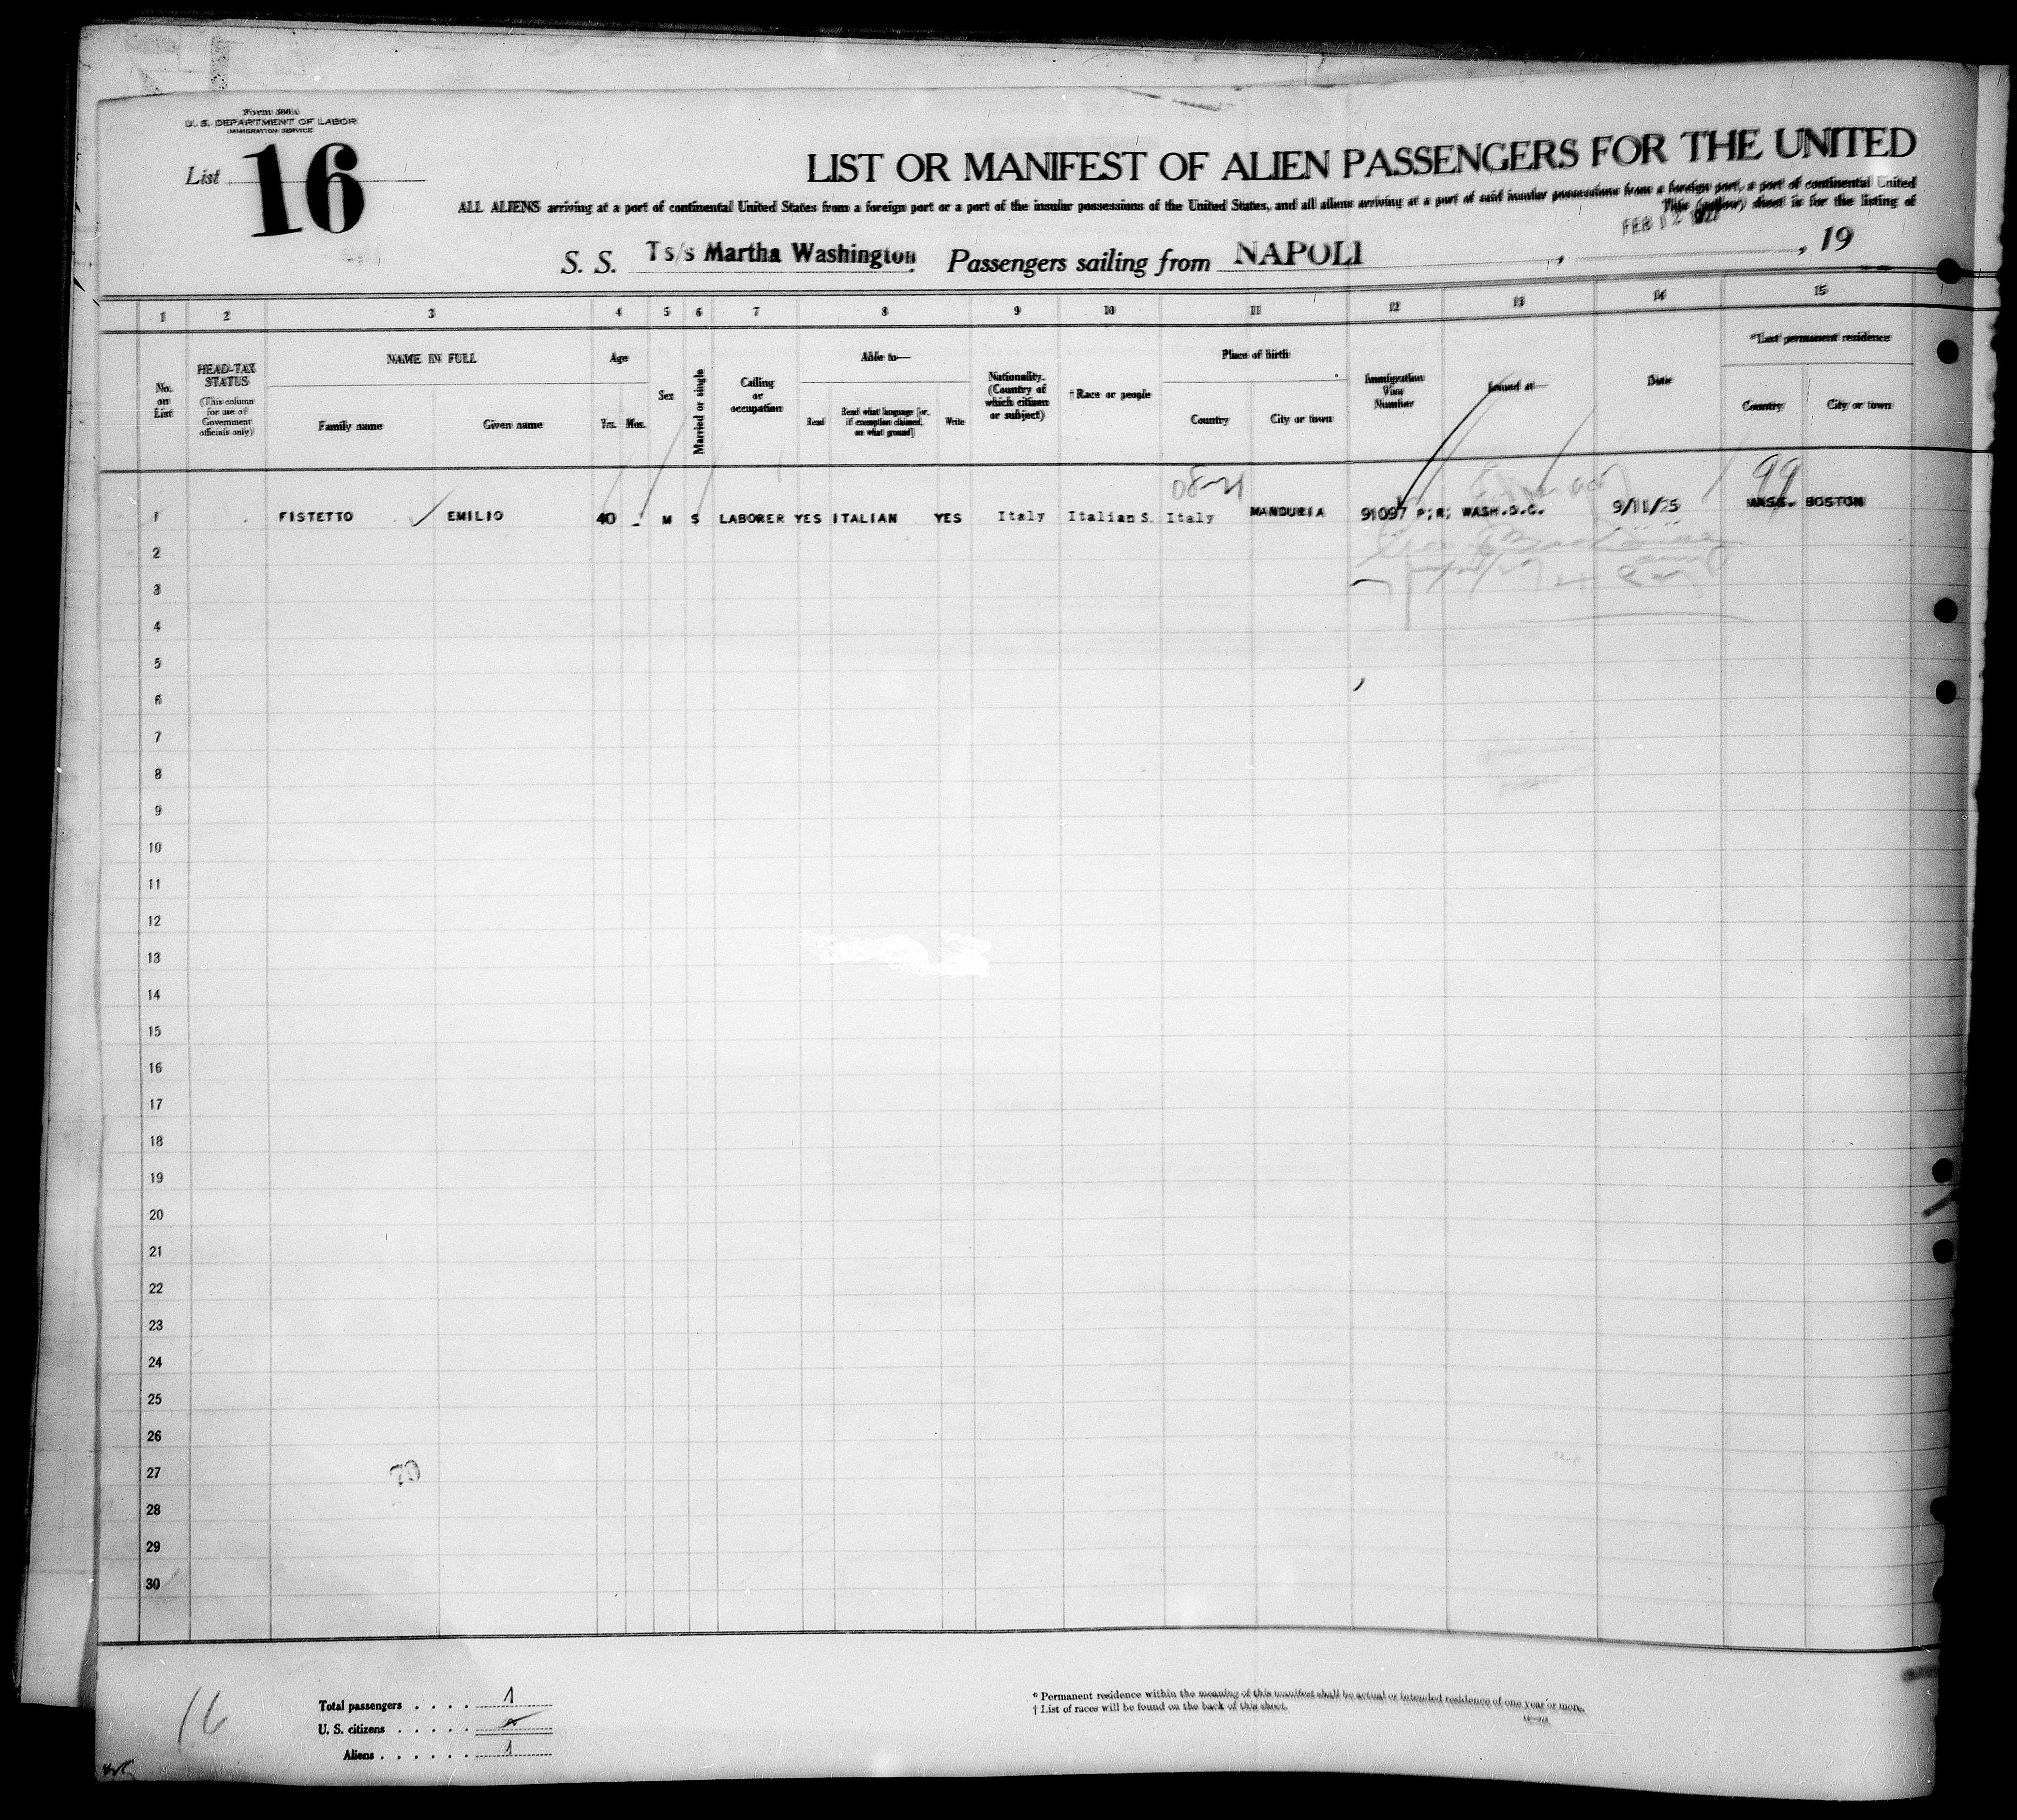 Form 500A
U. S. DEPARTMENT OF LABOR
IMMIGRATION SERVICE
List 16
LIST OR MANIFEST OF ALIEN PASSENGERS FOR THE UNITED
ALL ALIENS arriving at a port of continental United States from a foreign port or a port of the insular possessions of the United States, and all aliens arriving at a port of said insular possessions from a foreign port, a port of continental United
This (yellow) sheet is for the listing of
FEB 12
S. S. Ts/s Martha Washington Passengers sailing from NAPOLI , , 19
1 2 3 4 5 6 7 8 9 10 11 12 13 14 15
No. on List
HEAD-TAX STATUS
(This column for use of Government officials only)
NAME IN FULL
Family name Given name
Age
Yrs. Mos.
Sex
Married or single
Calling or occupation
Able to—
Read
Read what language [or, if exemption claimed, on what ground]
Write
Nationality. (Country of which citizen or subject)
†Race or people
Place of birth
Country City or town
Immigration Visa Number
Issued at—
Date
*Last permanent residence
Country City or town
08-21 99
1 FISTETTO EMILIO 40 - M S LABORER YES ITALIAN YES Italy Italian S. Italy MANDURIA 91097 P.R. WASH.D.C. 9/11/25 MASS. BOSTON
2
3
4
5
6
7
8
9
10
11
12
13
14
15
16
17
18
19
20
21
22
23
24
25
26
27 70
28
29
30
16
Total passengers . . . . . 1
U. S. citizens . . . . .
Aliens . . . . . . 1
* Permanent residence within the meaning of this manifest shall be actual or intended residence of one year or more.
† List of races will be found on the back of this sheet.